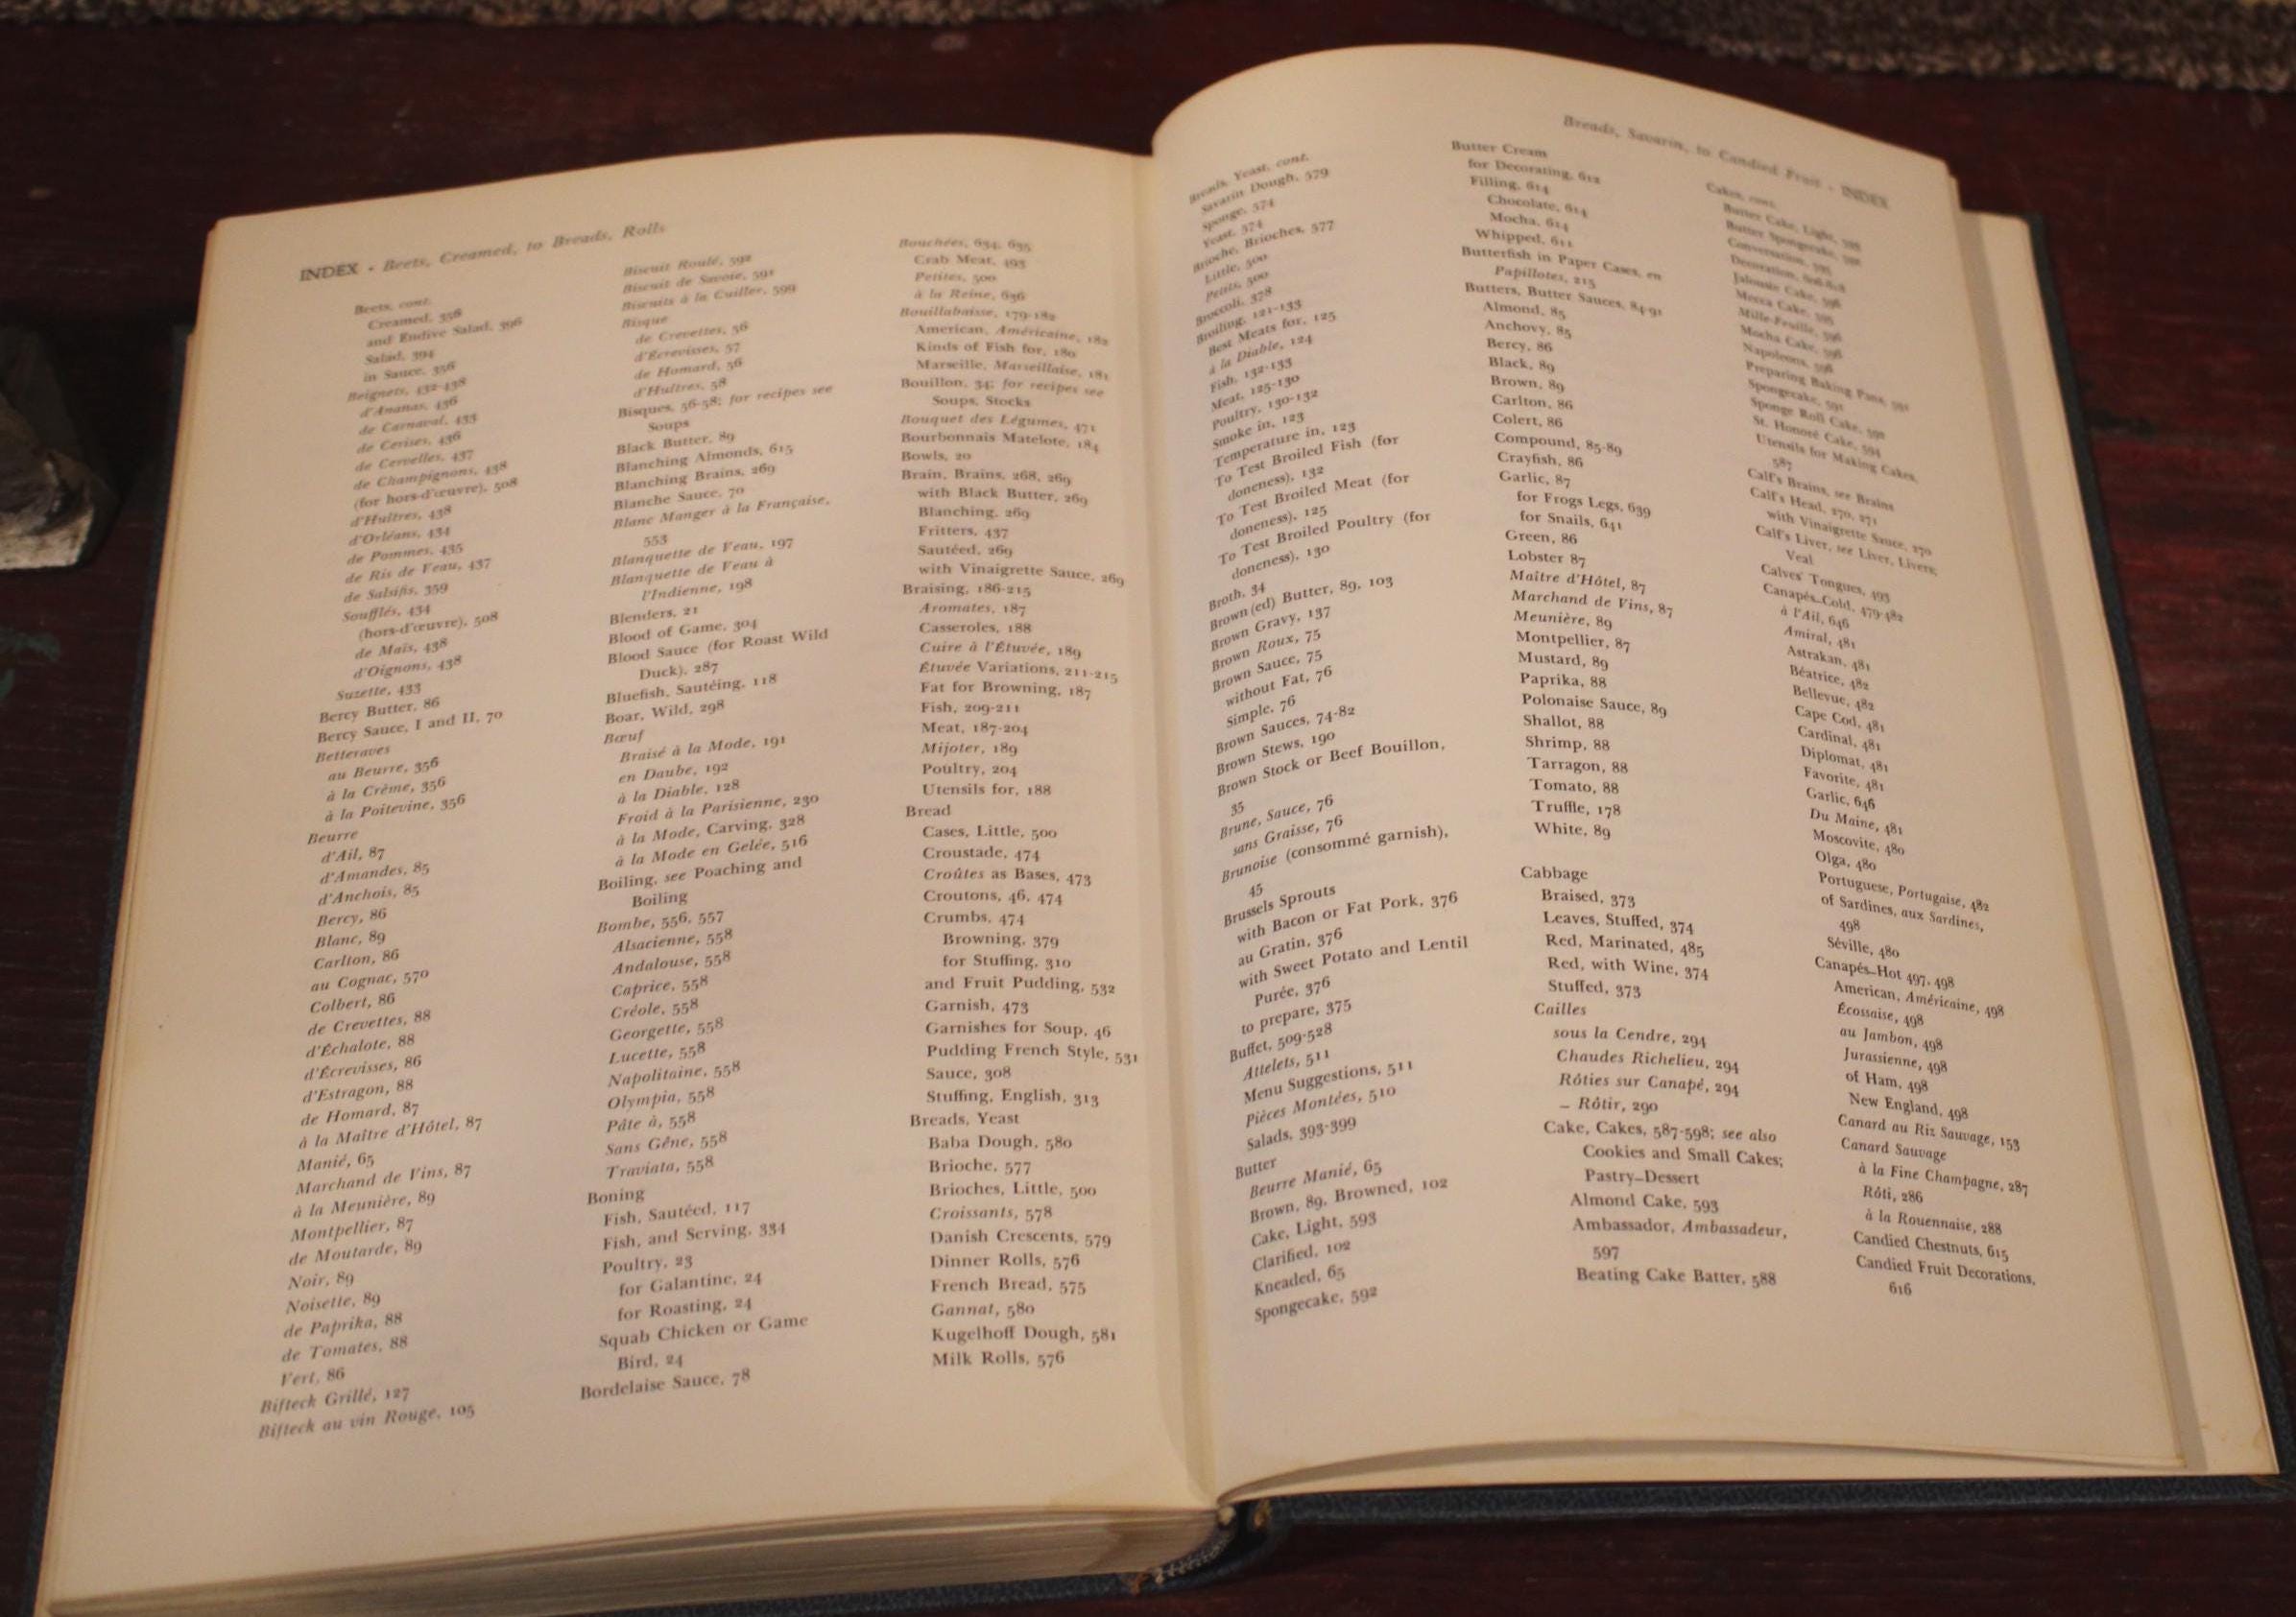 INDEX • Beets, Creamed, to Breads, Rolls
Beets, cont.
Creamed, 356
and Endive Salad, 396
Salad, 394
in Sauce, 356
Beignets, 432-438
d'Ananas, 436
de Carnaval, 433
de Cerises, 436
de Cervelles, 437
de Champignons, 438
(for hors-d'œuvre), 508
d'Huîtres, 438
d'Orléans, 434
de Pommes, 435
de Ris de Veau, 437
de Salsifis, 359
Soufflés, 434
(hors-d'œuvre), 508
de Maïs, 438
d'Oignons, 438
Suzette, 433
Bercy Butter, 86
Bercy Sauce, I and II, 70
Betteraves
au Beurre, 356
à la Crème, 356
à la Poitevine, 356
Beurre
d'Ail, 87
d'Amandes, 85
d'Anchois, 85
Bercy, 86
Blanc, 89
Carlton, 86
au Cognac, 570
Colbert, 86
de Crevettes, 88
d'Échalote, 88
d'Écrevisses, 86
d'Estragon, 88
de Homard, 87
à la Maître d'Hôtel, 87
Manié, 65
Marchand de Vins, 87
à la Meunière, 89
Montpellier, 87
de Moutarde, 89
Noir, 89
Noisette, 89
de Paprika, 88
de Tomates, 88
Vert, 86
Bifteck Grillé, 127
Bifteck au vin Rouge, 105
Biscuit Roulé, 592
Biscuit de Savoie, 591
Biscuits à la Cuiller, 599
Bisque
de Crevettes, 56
d'Écrevisses, 57
de Homard, 56
d'Huîtres, 58
Bisques, 56-58; for recipes see
Soups
Black Butter, 89
Blanching Almonds, 615
Blanching Brains, 269
Blanche Sauce, 70
Blanc Manger à la Française,
553
Blanquette de Veau, 197
Blanquette de Veau à
l'Indienne, 198
Blenders, 21
Blood of Game, 304
Blood Sauce (for Roast Wild
Duck), 287
Bluefish, Sautéing, 118
Boar, Wild, 298
Bœuf
Braisé à la Mode, 191
en Daube, 192
à la Diable, 128
Froid à la Parisienne, 230
à la Mode, Carving, 328
à la Mode en Gelée, 516
Boiling, see Poaching and
Boiling
Bombe, 556, 557
Alsacienne, 558
Andalouse, 558
Caprice, 558
Créole, 558
Georgette, 558
Lucette, 558
Napolitaine, 558
Olympia, 558
Pâte à, 558
Sans Gêne, 558
Traviata, 558
Boning
Fish, Sautéed, 117
Fish, and Serving, 334
Poultry, 23
for Galantine, 24
for Roasting, 24
Squab Chicken or Game
Bird, 24
Bordelaise Sauce, 78
Bouchées, 634, 635
Crab Meat, 493
Petites, 500
à la Reine, 636
Bouillabaisse, 179-182
American, Américaine, 182
Kinds of Fish for, 180
Marseille, Marseillaise, 181
Bouillon, 34; for recipes see
Soups, Stocks
Bouquet des Légumes, 471
Bourbonnais Matelote, 184
Bowls, 20
Brain, Brains, 268, 269
with Black Butter, 269
Blanching, 269
Fritters, 437
Sautéed, 269
with Vinaigrette Sauce, 269
Braising, 186-215
Aromates, 187
Casseroles, 188
Cuire à l'Étuvée, 189
Étuvée Variations, 211-215
Fat for Browning, 187
Fish, 209-211
Meat, 187-204
Mijoter, 189
Poultry, 204
Utensils for, 188
Bread
Cases, Little, 500
Croustade, 474
Croûtes as Bases, 473
Croutons, 46, 474
Crumbs, 474
Browning, 379
for Stuffing, 310
and Fruit Pudding, 532
Garnish, 473
Garnishes for Soup, 46
Pudding French Style, 531
Sauce, 308
Stuffing, English, 313
Breads, Yeast
Baba Dough, 580
Brioche, 577
Brioches, Little, 500
Croissants, 578
Danish Crescents, 579
Dinner Rolls, 576
French Bread, 575
Gannat, 580
Kugelhoff Dough, 581
Milk Rolls, 576
Breads, Savarin, to Candied Fruit • INDEX
Breads, Yeast, cont.
Savarin Dough, 579
Sponge, 574
Yeast, 574
Brioche, Brioches, 577
Little, 500
Petits, 500
Broccoli, 378
Broiling, 121-133
Best Meats for, 125
à la Diable, 124
Fish, 132-133
Meat, 125-130
Poultry, 130-132
Smoke in, 123
Temperature in, 123
To Test Broiled Fish (for
doneness), 132
To Test Broiled Meat (for
doneness), 125
To Test Broiled Poultry (for
doneness), 130
Broth, 34
Brown(ed) Butter, 89, 103
Brown Gravy, 137
Brown Roux, 75
Brown Sauce, 75
without Fat, 76
Simple, 76
Brown Sauces, 74-82
Brown Stews, 190
Brown Stock or Beef Bouillon,
35
Brune, Sauce, 76
sans Graisse, 76
Brunoise (consommé garnish),
45
Brussels Sprouts
with Bacon or Fat Pork, 376
au Gratin, 376
with Sweet Potato and Lentil
Purée, 376
to prepare, 375
Buffet, 509-528
Attelets, 511
Menu Suggestions, 511
Pièces Montées, 510
Salads, 393-399
Butter
Beurre Manié, 65
Brown, 89, Browned, 102
Cake, Light, 593
Clarified, 102
Kneaded, 65
Spongecake, 592
Butter Cream
for Decorating, 612
Filling, 614
Chocolate, 614
Mocha, 614
Whipped, 611
Butterfish in Paper Cases, en
Papillotes, 215
Butters, Butter Sauces, 84-91
Almond, 85
Anchovy, 85
Bercy, 86
Black, 89
Brown, 89
Carlton, 86
Colert, 86
Compound, 85-89
Crayfish, 86
Garlic, 87
for Frogs Legs, 639
for Snails, 641
Green, 86
Lobster 87
Maître d'Hôtel, 87
Marchand de Vins, 87
Meunière, 89
Montpellier, 87
Mustard, 89
Paprika, 88
Polonaise Sauce, 89
Shallot, 88
Shrimp, 88
Tarragon, 88
Tomato, 88
Truffle, 178
White, 89
Cabbage
Braised, 373
Leaves, Stuffed, 374
Red, Marinated, 485
Red, with Wine, 374
Stuffed, 373
Cailles
sous la Cendre, 294
Chaudes Richelieu, 294
Rôties sur Canapé, 294
– Rôtir, 290
Cake, Cakes, 587-598; see also
Cookies and Small Cakes;
Pastry–Dessert
Almond Cake, 593
Ambassador, Ambassadeur,
597
Beating Cake Batter, 588
Cakes, cont.
Butter Cake, Light,
Butter Spongecake,
Conversation,
Decoration,
Jalousie Cake,
Mecca Cake,
Mille-Feuille,
Mocha Cake,
Napoleons,
Preparing Baking Pans, 591
Spongecake, 591
Sponge Roll Cake, 592
St. Honoré Cake, 594
Utensils for Making Cakes,
587
Calf's Brains, see Brains
Calf's Head, 270, 271
with Vinaigrette Sauce, 270
Calf's Liver, see Liver, Livers;
Veal
Calves' Tongues, 493
Canapés–Cold, 479-482
à l'Ail, 646
Amiral, 481
Astrakan, 481
Béatrice, 482
Bellevue, 482
Cape Cod, 481
Cardinal, 481
Diplomat, 481
Favorite, 481
Garlic, 646
Du Maine, 481
Moscovite, 480
Olga, 480
Portuguese, Portugaise, 482
of Sardines, aux Sardines,
498
Séville, 480
Canapés–Hot 497, 498
American, Américaine, 498
Écossaise, 498
au Jambon, 498
Jurassienne, 498
of Ham, 498
New England, 498
Canard au Riz Sauvage, 153
Canard Sauvage
à la Fine Champagne, 287
Rôti, 286
à la Rouennaise, 288
Candied Chestnuts, 615
Candied Fruit Decorations,
616